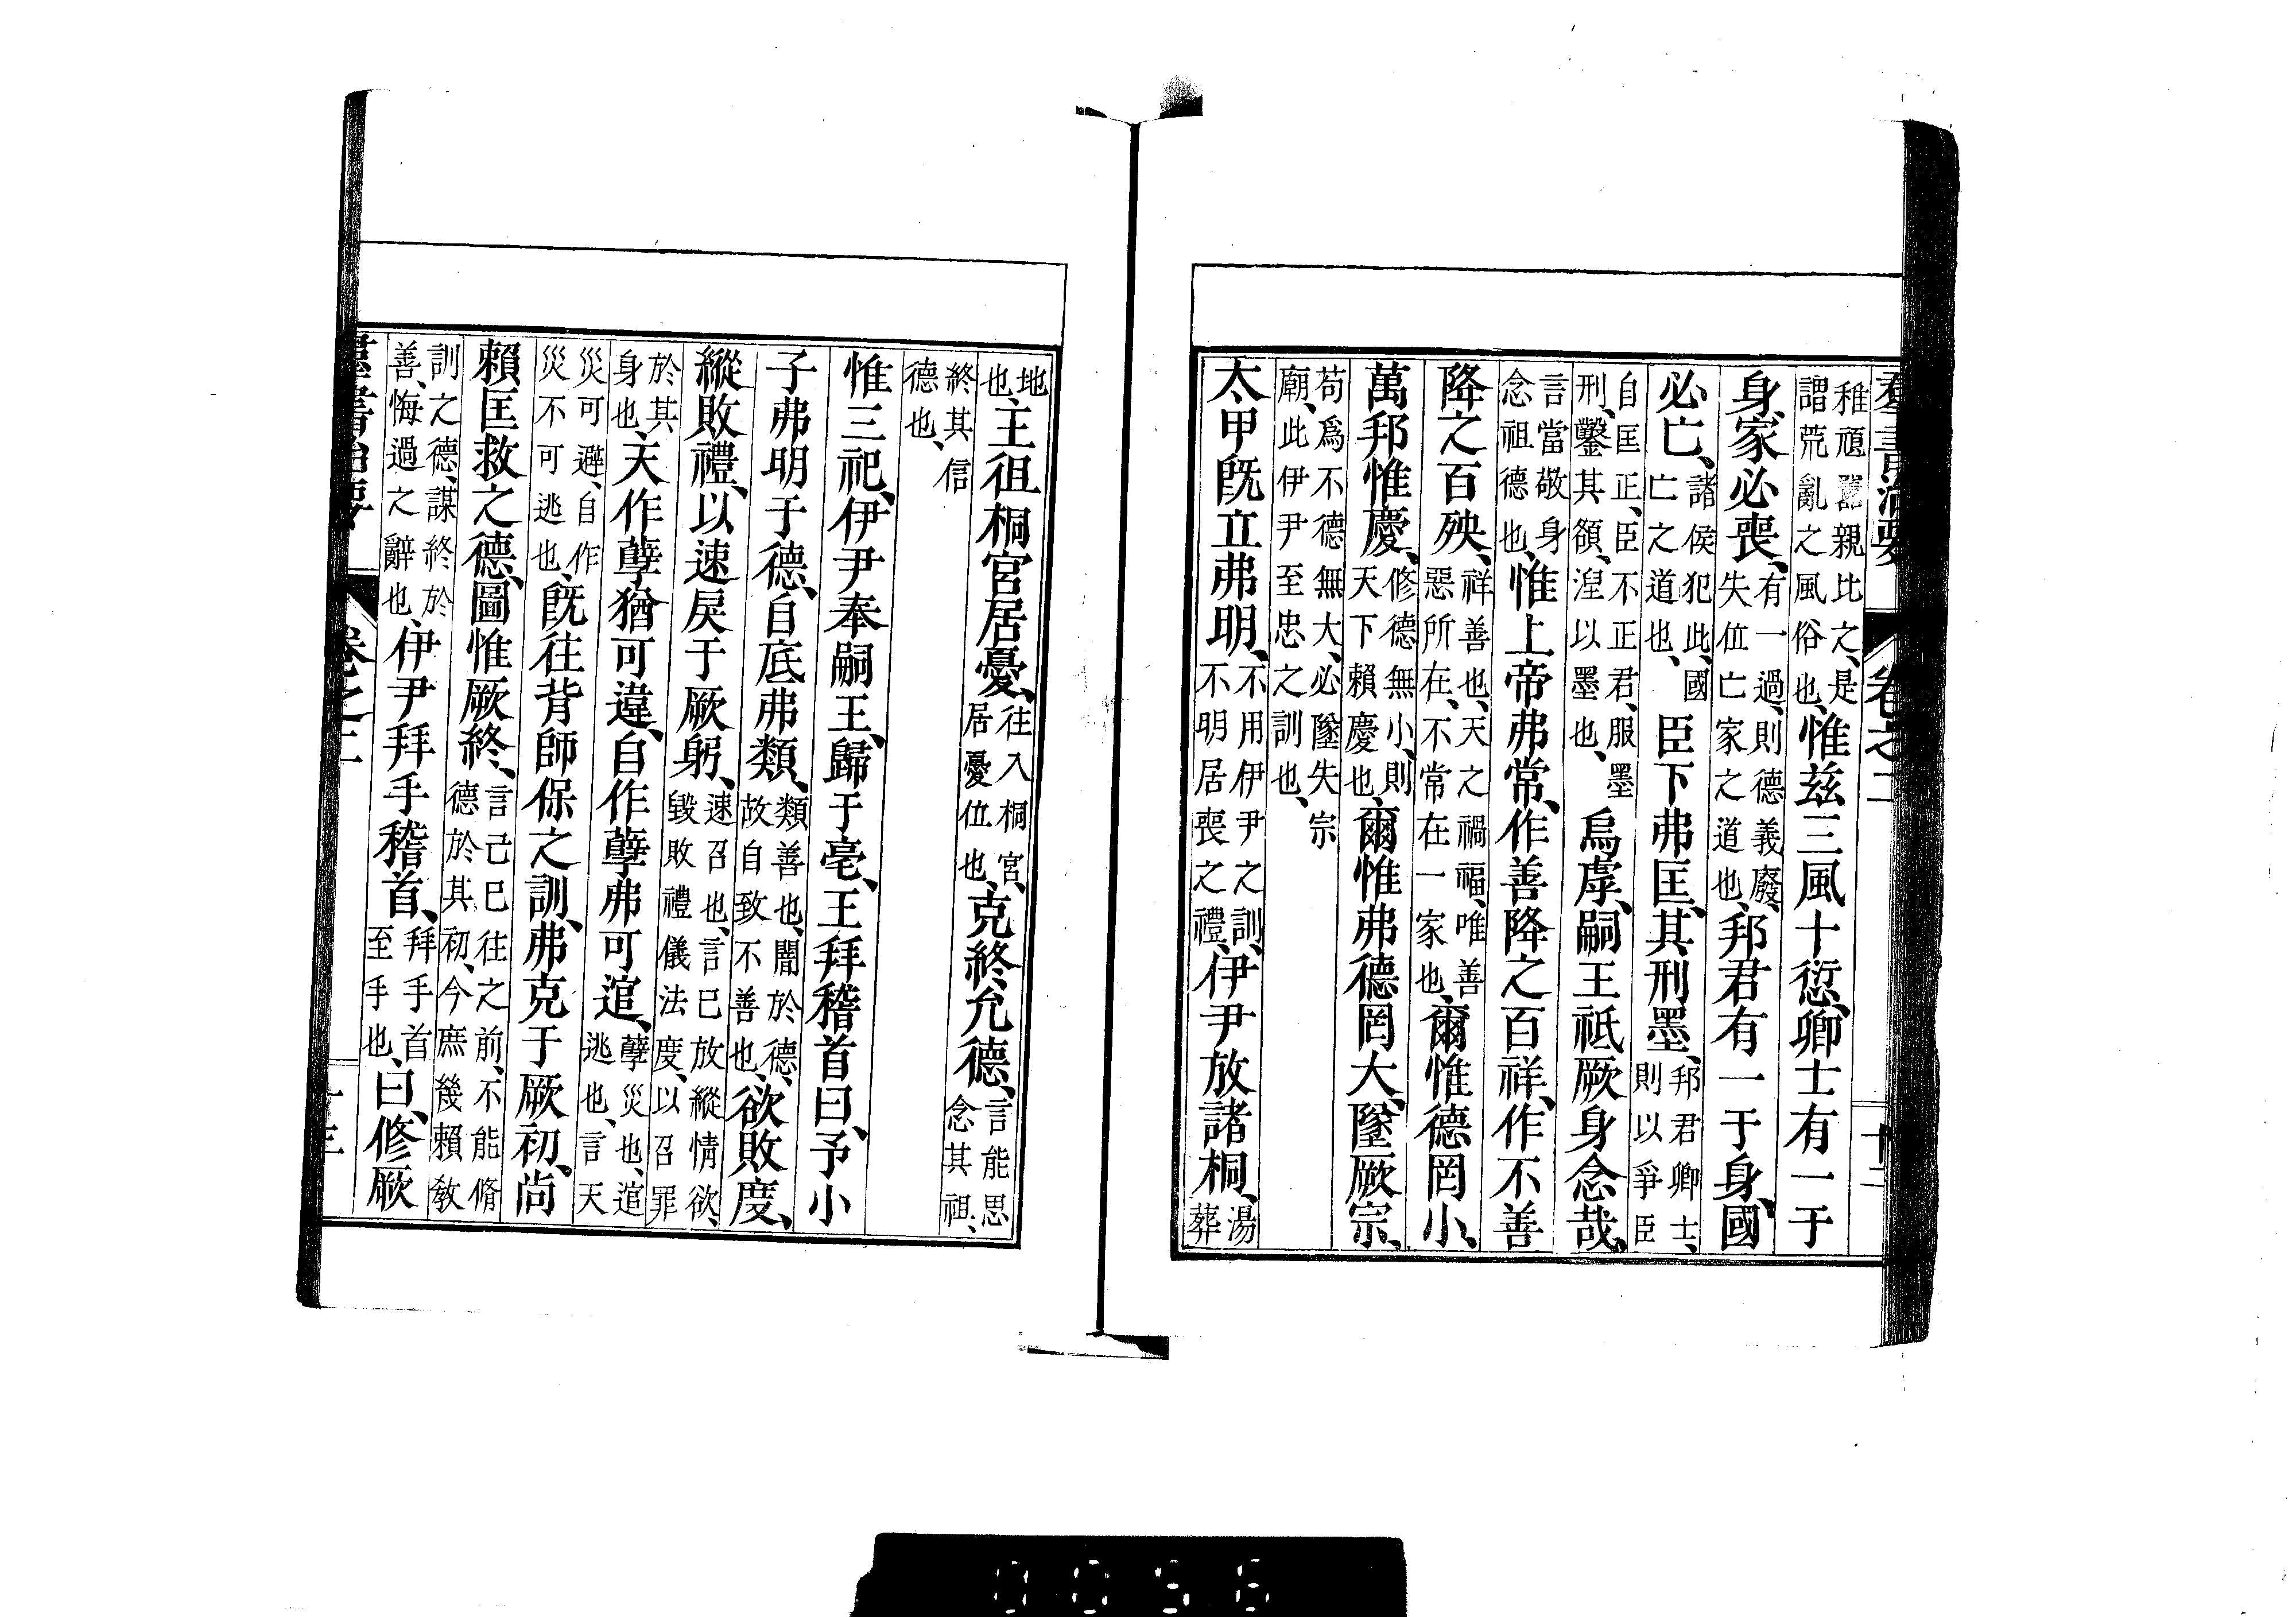 羣書治要 卷之二 十二
稚頑嚚親比之、是
謂荒亂之風俗也、惟茲三風十愆、卿士有一于
身、家必喪、有一過、則德義廢、
失位亡家之道也、邦君有一于身、國
必亡、諸侯犯此、國
亡之道也、臣下弗匡、其刑墨、邦君卿士、
則以爭臣
自匡正、臣不正君、服墨
刑、鑿其頟、湼以墨也、烏虖、嗣王祗厥身念哉、
言當敬身
念祖德也、惟上帝弗常、作善降之百祥、作不善
降之百殃、祥善也、天之禍福、唯善
惡所在、不常在一家也、爾惟德罔小、
萬邦惟慶、修德無小、則
天下賴慶也、爾惟弗德罔大、墜厥宗、
苟爲不德無大、必墜失宗
廟、此伊尹至忠之訓也、
太甲旣立弗明、不用伊尹之訓、
不明居喪之禮、伊尹放諸桐、湯
葬
地
也、王徂桐宮居憂、往入桐宮、
居憂位也、克終允德、言能思
念其祖、
終其信
德也、
惟三祀、伊尹奉嗣王、歸于亳、王拜稽首曰、予小
子弗明于德、自底弗類、類善也、闇於德、
故自致不善也、欲敗度、
縱敗禮、以速戾于厥躬、速召也、言已放縱情欲、
毀敗禮儀法度、以召罪
於其
身也、天作孽猶可違、自作孽弗可逭、孽災也、逭
逃也、言天
災可避、自作
災不可逃也、旣往背師保之訓、弗克于厥初、尚
賴匡救之德、圖惟厥終、言己已往之前、不能脩
德於其初、今庶幾賴敎
訓之德、謀終於
善、悔過之辭也、伊尹拜手稽首、拜手首
至手也、曰、修厥
羣書治要 卷之二 十三
0056